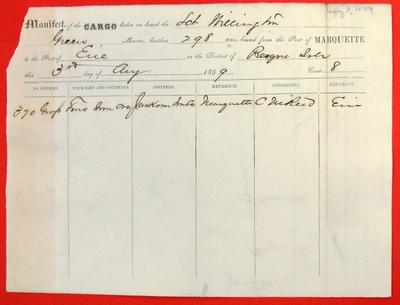 Aug 3, 1859
Manifest, of the CARGO taken on board the Sch Wellington
Green Master, burthen 298 tons, bound from the Port of MARQUETTE
to the Port of Erie in the District of Presque Isle
this 3rd day of Aug 1859. 8
NO ENTRIES. PACKAGES AND CONTENTS. SHIPPERS. RESIDENCE. CONSIGNEES. RESIDENCE.
370 Gross Tons Iron Ore Jackson Marquette Erie